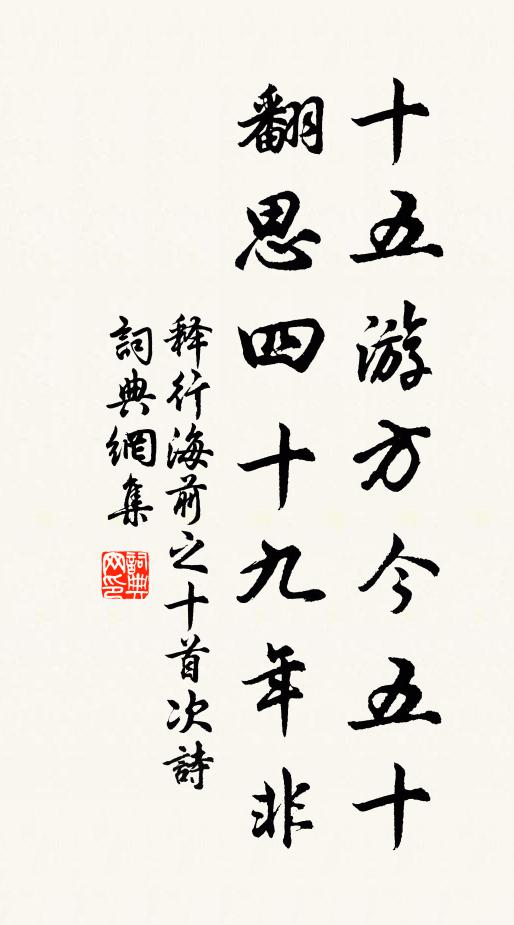 十五游方今五十
翻思四十九年非
释行海前之十首次詩
詞典網集
詞典网印